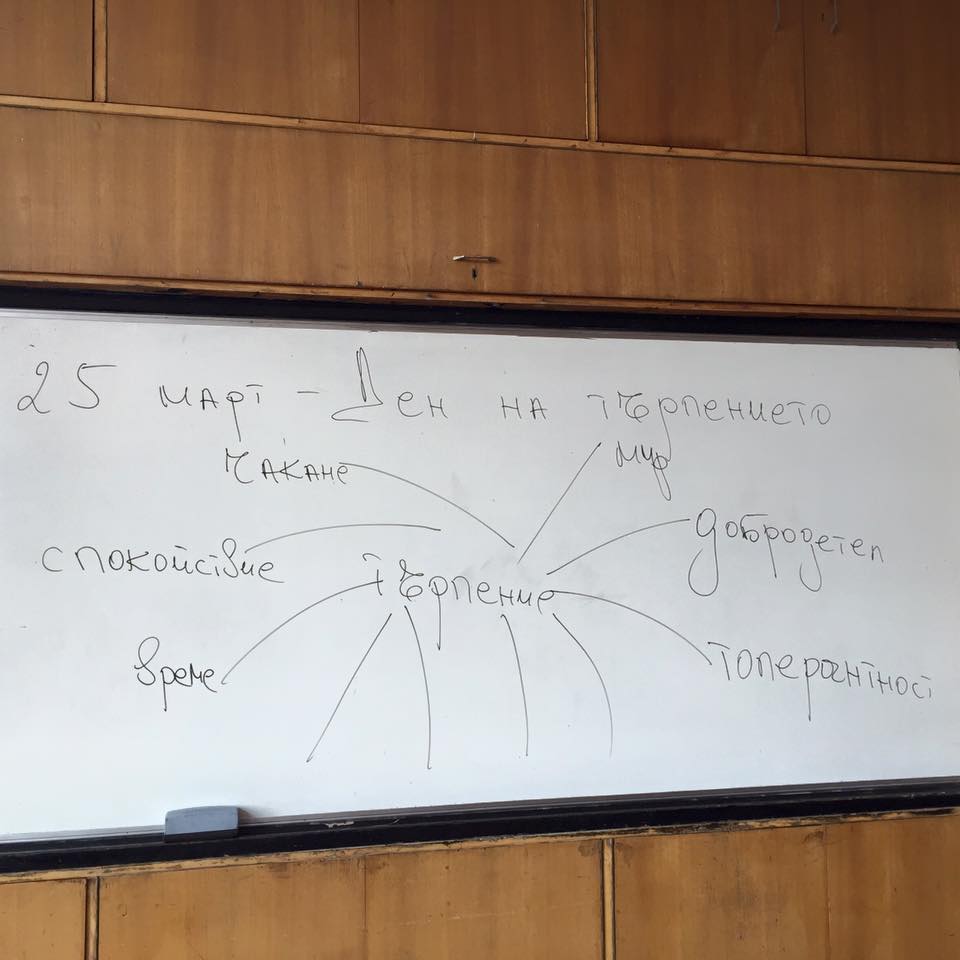 25 март - Ден на търпението
чакане
мир
спокойствие
добродетел
търпение
време
толерантност